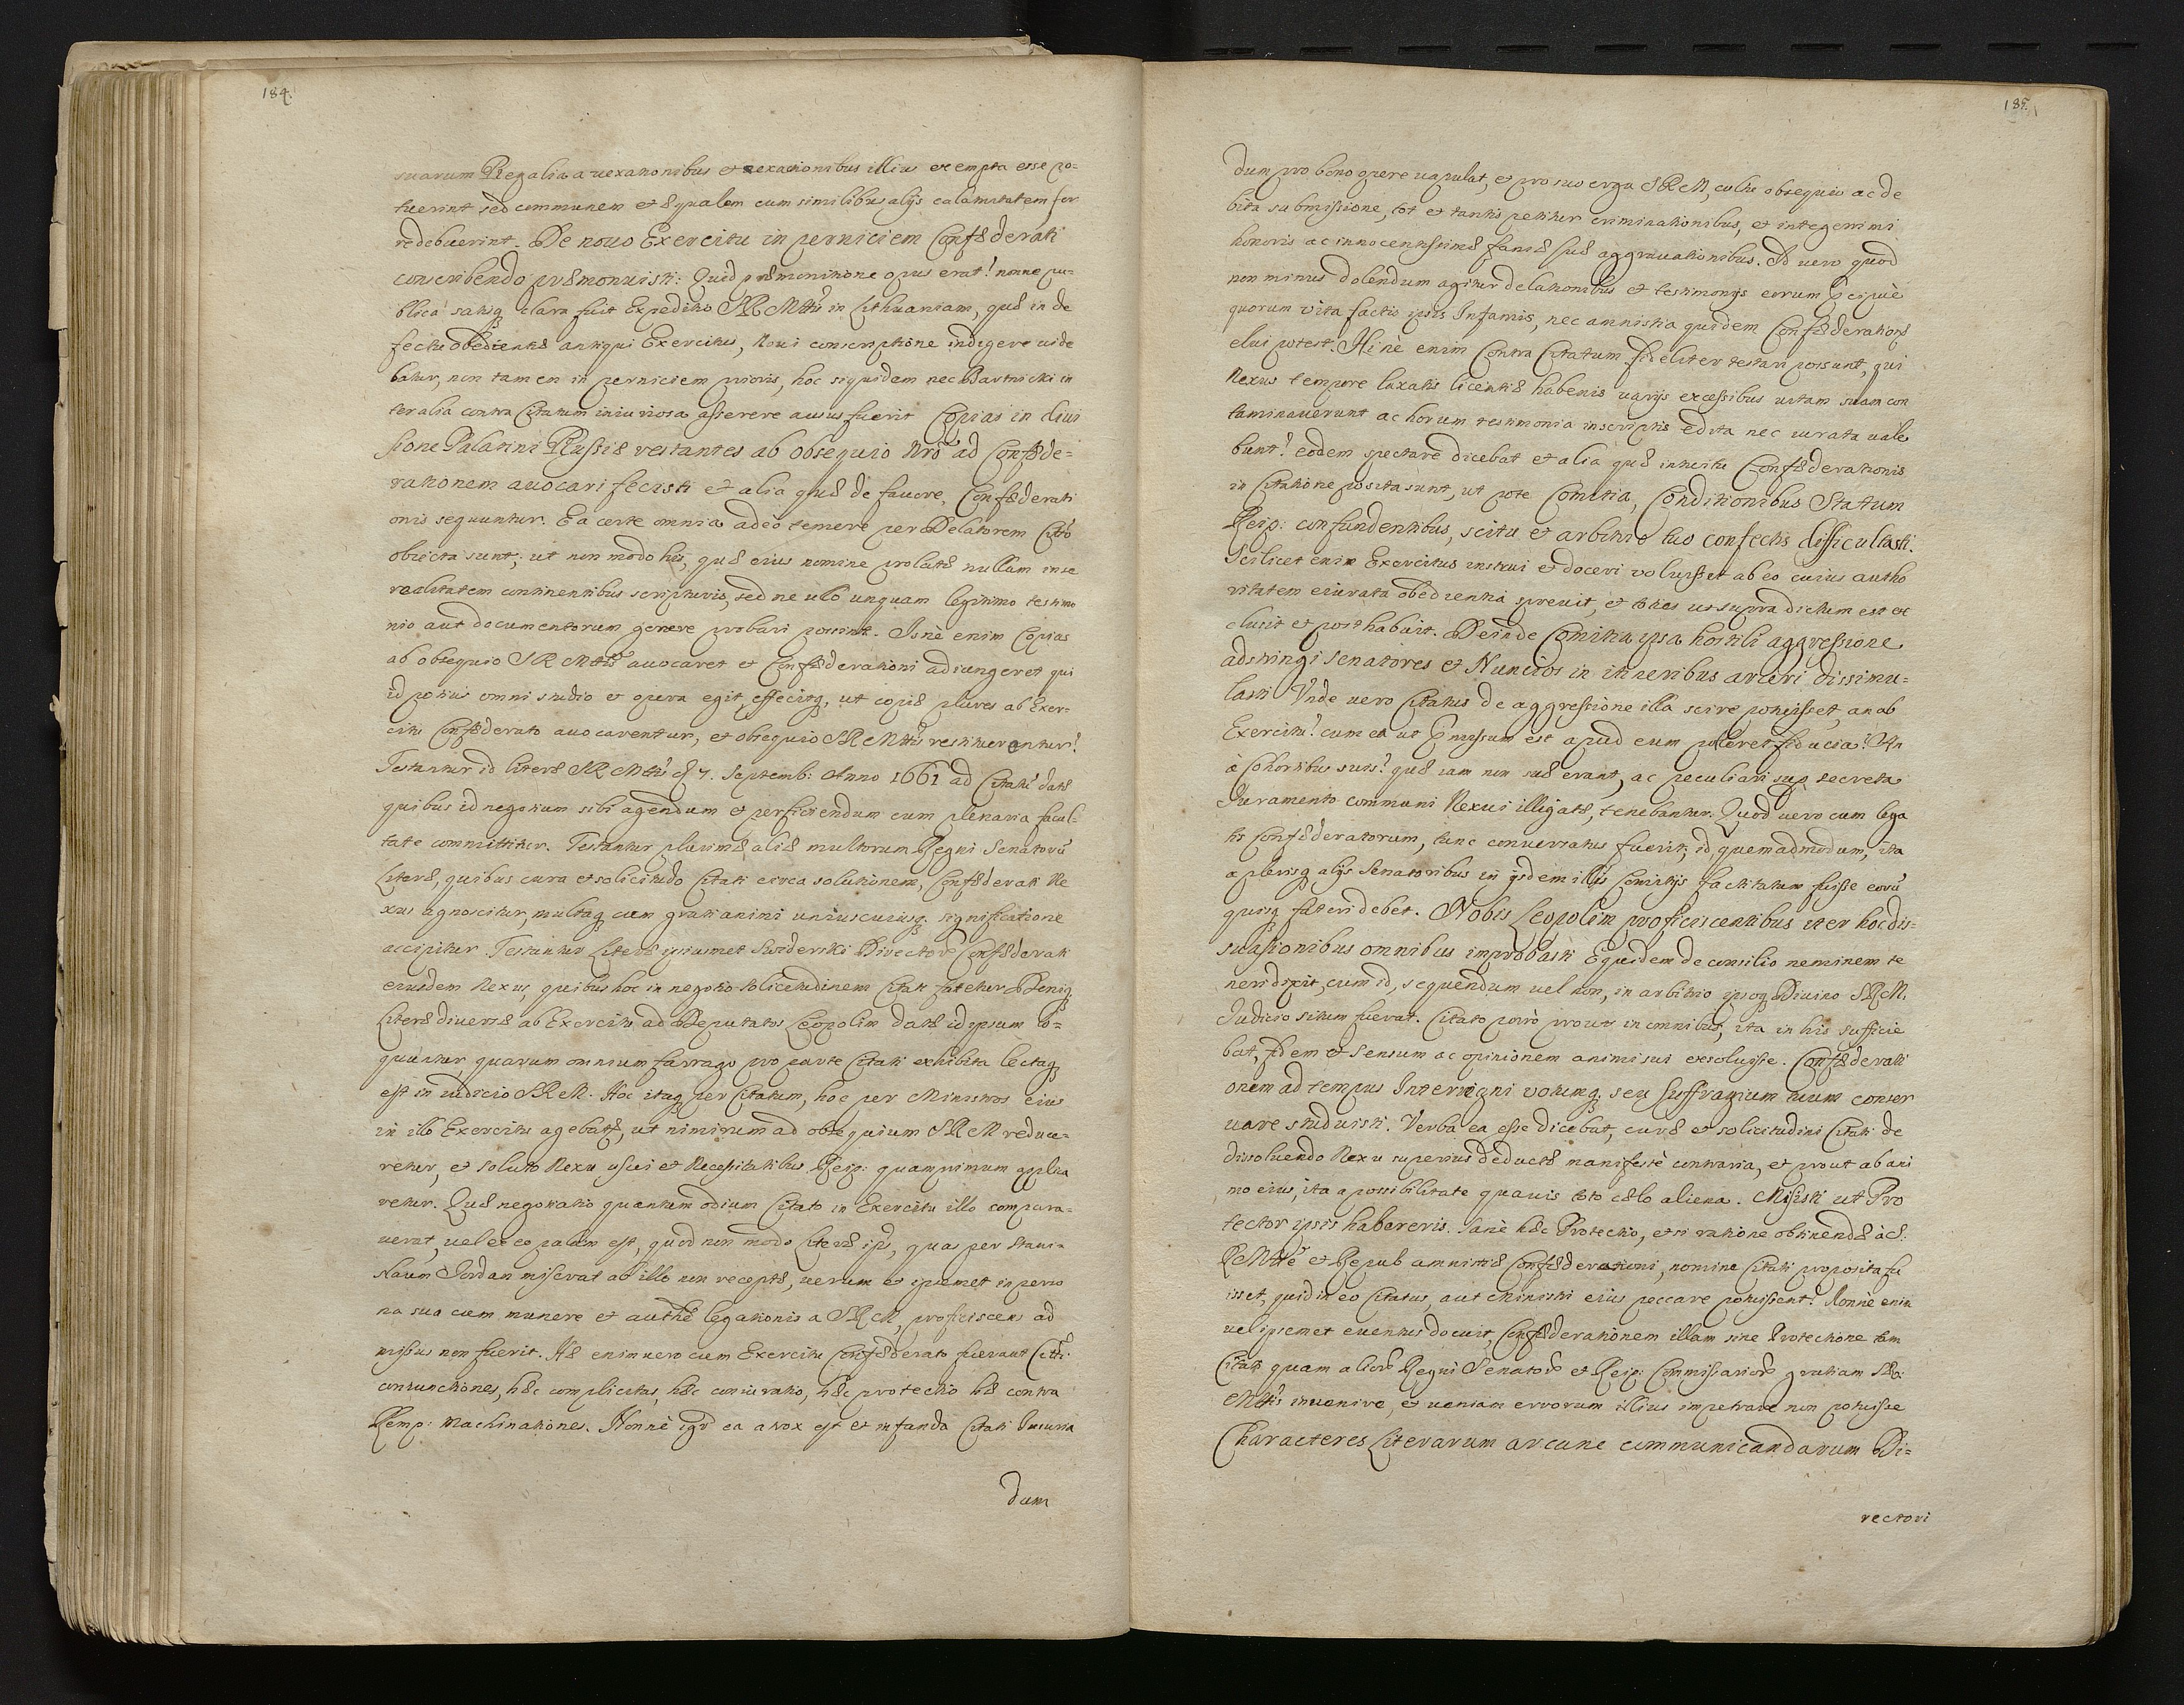 184.
suarum Regalia a vexationibus et vexationibus illius exempta esse po=
tuerint sed communem et æqualem cum similibus alijs calamitatem fer
re debuerint. De novo Exercitu in perniciem Confæderati
conscribendo præmonuisti: Quid præmonitione opus erat? nonne pu=
blicâ satisq clara fuit Expeditio SRMttis in Lithuaniam, quæ in de
fectu obedientiæ antiqui Exercitus, Novi conscriptione indigere vide
batur, non tamen in perniciem prioris, hoc siquidem nec Bartnicki in
ter alia contra Citatum iniuriosa asserere ausus fuerit Copias in divi
sione Palatini Russiæ restantes ab obsequio Nro ad Confæde=
rationem avocari fecisti et alia quæ de favore, Confæderati
onis sequuntur. Ea certe omnia adeo temere per Delatorem Citto
obiecta sunt; ut non modo his, quæ eius nomine prolatæ nullam in se
realitatem continentibus scripturis, sed ne ullo unquam legitimo testimo
nio aut documentorum genere probari possint. Isnè enim Copias
ab obsequio SRMttis avocaret et Confæderationi adiungeret qui
id potius omni studio et opera egit, effecitq, ut copiæ plures ab Exer=
citu Confæderato avocarentur, et obsequio SRMttis restituerentur?
Testantur id literæ SRMttis 7. Septemb: Anno 1661 ad Citatũ datæ
quibus id negotium sibi agendum et perficiendum cum plenaria facul=
tate committitur. Testantur plurimæ aliæ multorum Regni Senatorũ
Literæ, quibus cura et solicitudo Citati circa solutionem, Confæderati Ne
xus agnoscitur, multaq cum grati animi uniuscuiusq significatione
accipitur. Testantur Literæ ipsiusmet Swiderski Directoris Confæderati
eiusdem Nexus, quibus hoc in negotio solicitudinem Citati fatetur. Deniq
Literæ diversæ ab Exercitu ad Deputatos Leopolim datæ id ipsum lo=
quuntur, quarum omnium farrago pro parte Citati exhibita lectaq
est in iudicio SRM. Hoc itaq per Citatum, hoc per Ministros eius
in illo Exercitu agebatur, ut nimirum ad obsequium SRM reduce=
retur, et soluto Nexu usui et Necessitatibus Reip: quamprimum applica
retur. Quæ negotiatio quantum odium Citato in Exercitu illo compara=
verat, vel ex eo palam est, quod non modo Literæ ipsæ, quas per Stani=
slaum Jordan miserat ab illo non receptæ, verum et ipsemet in perso
na sua cum munere et authte legationis a SRM, proficiscens ad
missus non fuerit. Hæ enimvero cum Exercitu Confæderato fuerant Citti
coniunctiones, hæc complicitas, hæc coniuratio, hæc protectio hæ contra
Remp: Machinationes. Nonnè igr ea atrox est et infanda Citati Iniuria
dum
185.
dum pro bono opere vapulat, et pro suo erga SRM, cultu obsequio ac de
bita submissione, tot et tantis petitur criminationibus, et integerrimi
honoris ac innocentissimæ famæ suæ aggravationibus. Id vero quod
non minus dolendum agitur delationibus et testimonijs eorum præcipuè
quorum vita factis ipsis Infamis, nec amnistia quidem Confæderationis
elui potest. Hinè enim Contra Citatum fideliter testari possunt, qui
Nexus tempore laxatis licentiæ habenis varijs excessibus vitam suam con
taminaverunt ac horum testimonia inscriptis edita nec iurata vale
bunt? eodem spectare dicebat et alia quæ intuitu Confæderationis
in Citatione posita sunt, ut pote Comitia, Conditionibus Statum
Reip: confundentibus, scitu et arbitrio tuo confectis difficultasti.
Scilicet enim Exercitus instrui et doceri voluisset ab eo cuius autho
ritatem eiurata obedientia sprevit, et toties ut supra dictum est ex
clusit et posthabuit. Deinde Comitia ipsa hostili aggressione
adstringi Senatores et Nuncios in itineribus arceri dissimu=
lasti Unde vero Citatus de aggressione illa scire potuisset, an ab
Exercitu? cum ea ut præmissum est apud eum polleret fiducia? An
à Cohortibus suis? quæ iam non suæ erant, ac peculiari suo secreta
Iuramento communi Nexui illigatæ, tenebantur. Quod vero cum lega
tis Confæderatorum, tunc conversatus fuerit, id quemadmodum, ita
a plerisq alijs Senatoribus in ijsdem illis Comitijs factitatum fuisse eorũ
quisq fateri debet. Nobis Leopolim proficiscentibus iter hoc dis=
suasionibus omnibus improbasti Equidem de consilio neminem te
neri dixit, cum id, sequendum vel non, in arbitrio ipsoq Divino SRM.
Iudicio situm fuerat. Citato porrò prout in omnibus, ita in his sufficie
bat, fidem et sensum ac opinionem animi sui exsoluisse. Confæderati
onem ad tempus Interregni votumq. seu suffragium tuum conser
vare studuisti. Verba ea esse dicebat, curæ et solicitudini Citati de
dissoluendo Nexu superius deductæ manifestè contraria, et prout ab ani
mo eius, ita a possibilitate quavis toto cælo aliena. Misisti ut Pro
tector ipsis habereris. Sanè hæc Protectio, etsi ratione obtinendæ à S.
RMtte et Repub amnistiæ Confæderationi, nomine Citati proposita fu
isset, quid in eo Citatus, aut Ministri eius peccare potuissent? Nonnè enim
vel ipsemet eventus docuit, Confæderationem illam sine Protectione tam
Citati quam alior Regni Senator et Reip: Commissarior gratiam SRa:
Mttis invenire, et veniam errorum illius impetrare non potuisse
Characteres Literarum arcane communicandarum Di=
rectori